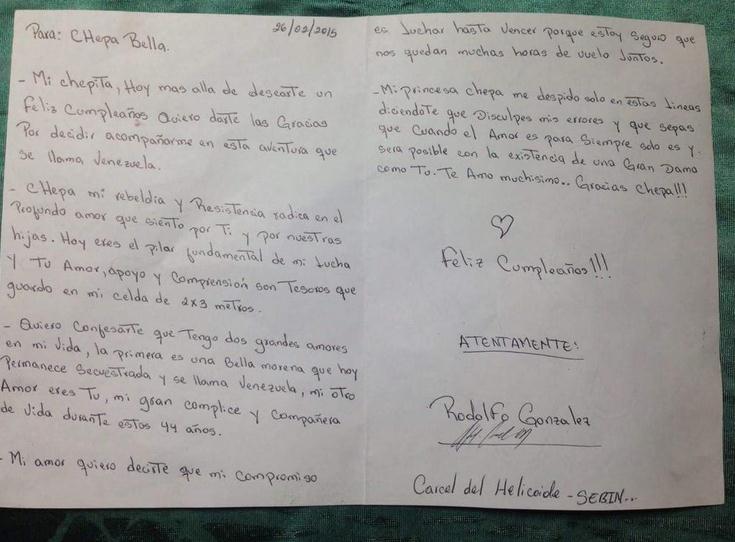 Para: CHepa Bella.
26/02/2015
- Mi chepita, Hoy mas alla de desearte un
Feliz Cumpleaños Quiero darte las Gracias
Por decidir acompañarme en esta aventura que
se llama Venezuela.
- CHepa mi rebeldia y Resistencia radica en el
Profundo amor que siento por Ti y por nuestras
hijas. Hoy eres el pilar fundamental de mi lucha
y Tu Amor, apoyo y Comprensión son Tesoros que
guardo en mi celda de 2x3 metros.
- Quiero Confesarte que Tengo dos grandes amores
en mi vida, la primera es una Bella morena que hoy
Permanece Secuestrada y se llama Venezuela, mi otro
Amor eres Tu, mi gran complice y Compañera
de Vida durante estos 44 años.
- Mi amor quiero decirte que mi compromiso
es luchar hasta vencer porque estoy Seguro que
nos quedan muchas horas de vuelo Juntos.
- Mi princesa chepa me despido solo en estas lineas
diciendote que Disculpes mis errores y que sepas
que Cuando el Amor es para Siempre solo es y
sera posible con la existencia de una Gran Dama
como Tu. Te Amo muchisimo.. Gracias Chepa!!!
Feliz Cumpleaños!!!
ATENTAMENTE:
Rodolfo Gonzalez
Carcel del Helicoide - SEBIN..